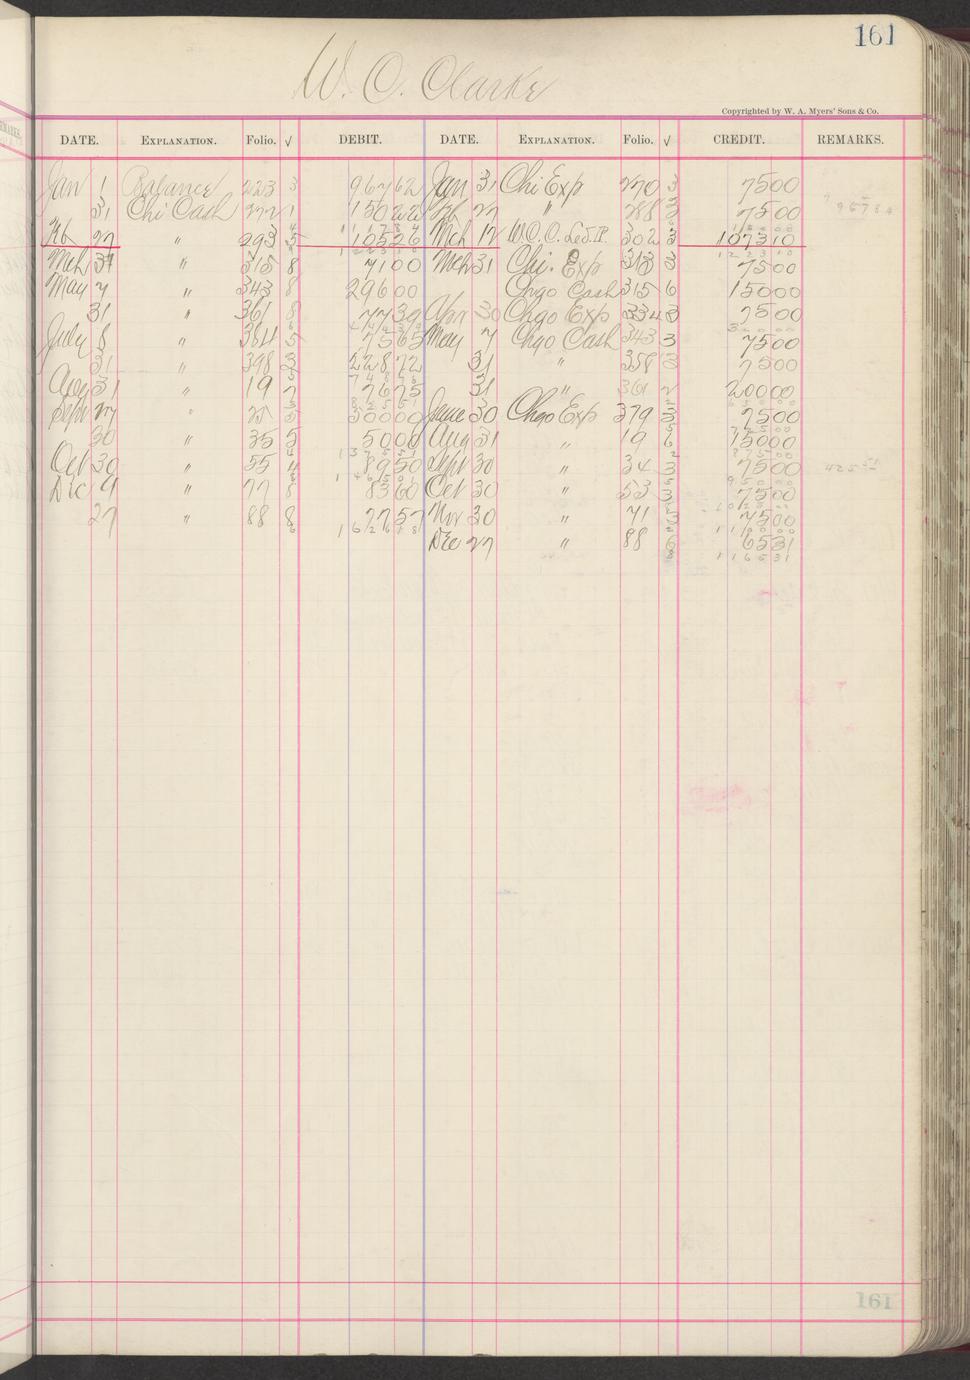 161
W. C. Clarke
Copyrighted by W. A. Myers' Sons & Co.
DATE. EXPLANATION. Folio. √ DEBIT. DATE. EXPLANATION. Folio. √ CREDIT. REMARKS.
Jan 1 Balance 223 3 967 62 Jan 31 Chi Exp 270 3 75 00
31 Chi Cash 272 1 150 22 Feb 27 " 288 3 75 00
Feb 27 " 293 5 105 26 Mch 12 W.C.C. Led. P. 302 3 1073 10
Mch 31 " 315 8 71 00 Mch 31 Chi. Exp 318 3 75 00
May 7 " 343 8 296 00 Chgo Cash 315 6 150 00
31 " 361 8 77 39 Apr 30 Chgo Exp 334 3 75 00
July 8 " 384 5 75 65 May 7 Chgo Cash 343 3 75 00
31 " 398 3 228 72 31 " 358 3 75 00
Aug 31 " 19 7 76 75 31 " 361 2 200 00
Sept 27 " 25 5 500 00 June 30 Chgo Exp 379 3 75 00
30 " 35 5 50 00 Aug 31 " 19 6 150 00
Oct 30 " 55 4 89 50 Sept 30 " 34 3 75 00
Dec 4 " 77 8 83 60 Oct 30 " 53 3 75 00
27 " 88 8 77 57 Nov 30 " 71 75 00
Dec 27 " 88 65 31
1 1 6 5 31
161